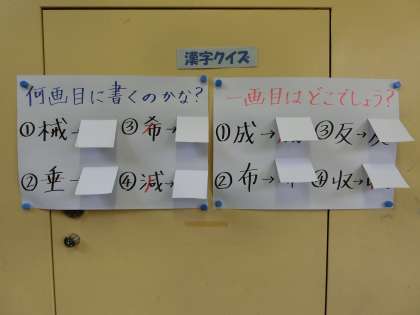 漢字クイズ
何画目に書くのかな?
①械→
③希→
②垂→
④減→
一画目はどこでしょう?
①成→
③反→
②布→
④収→